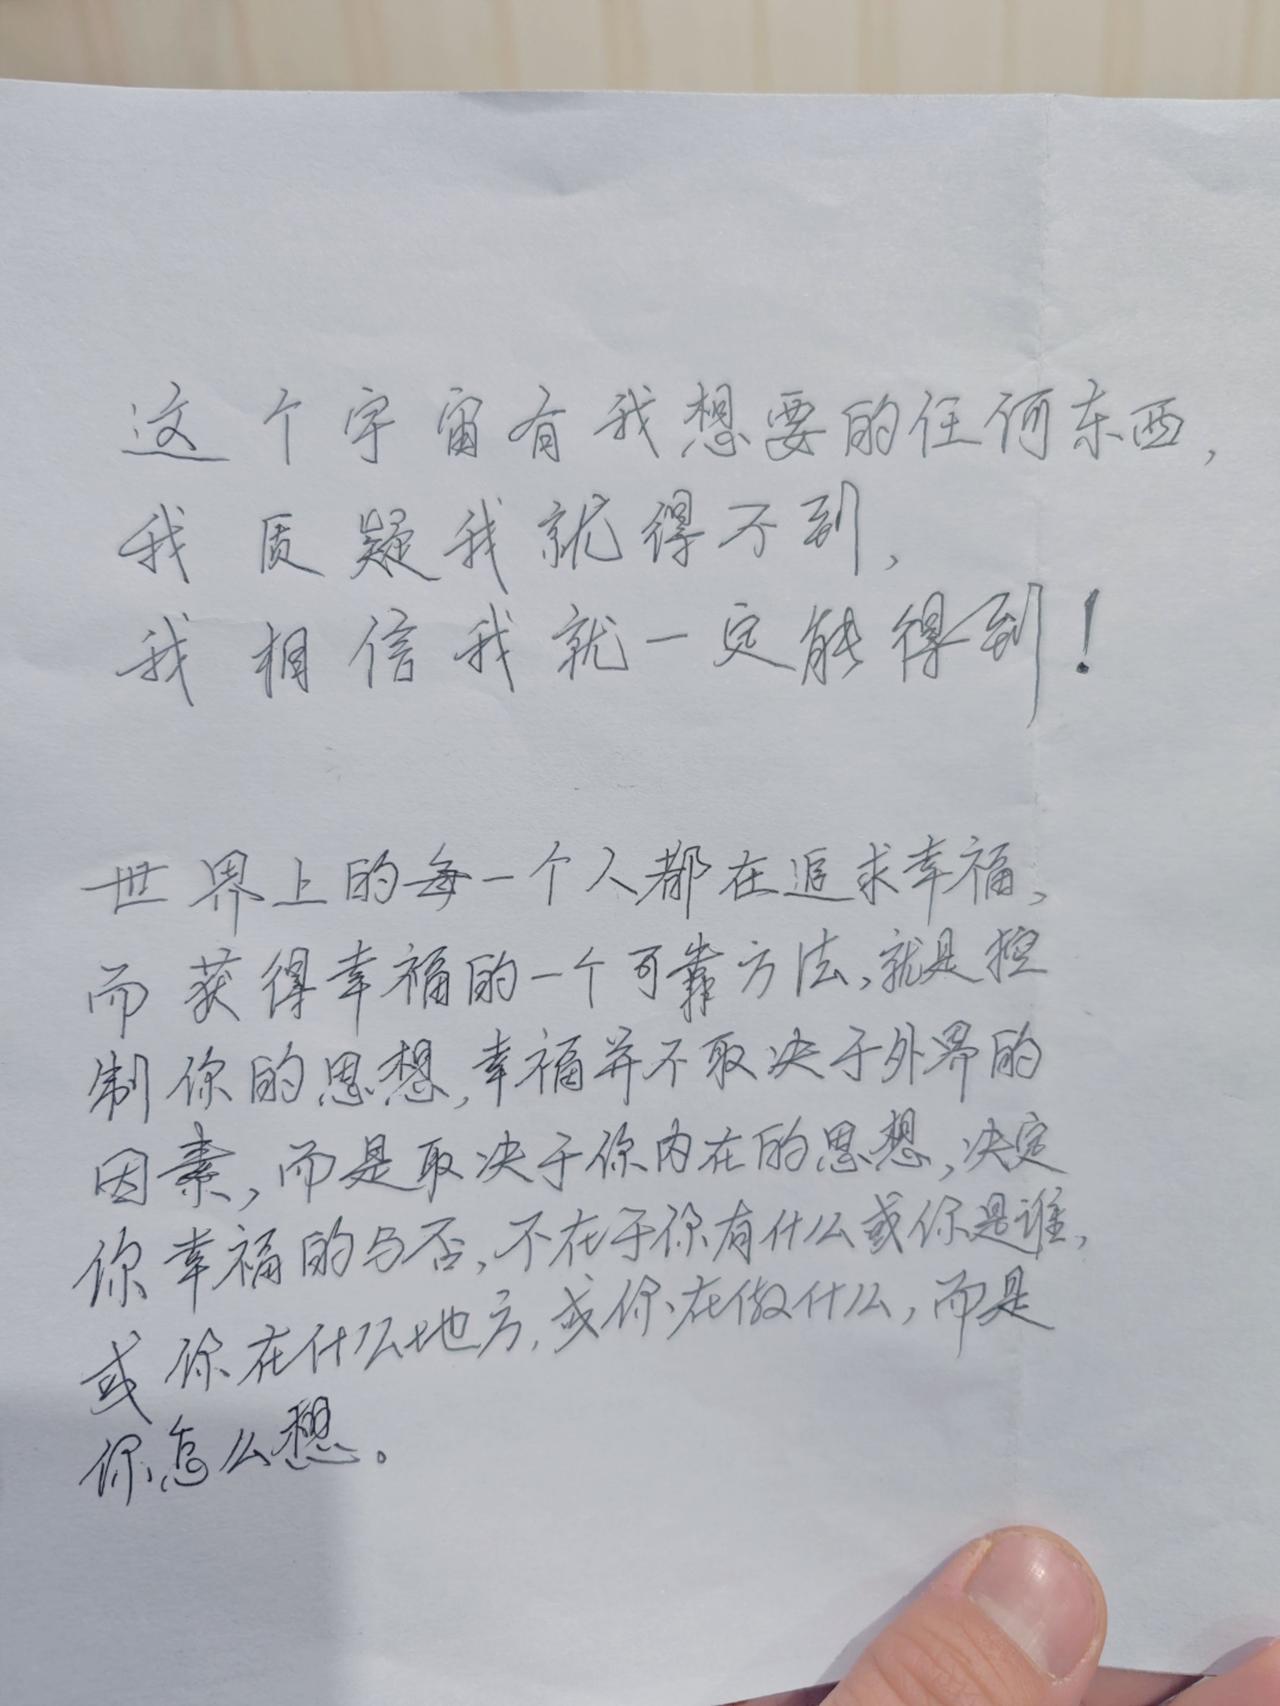 这个宇宙有我想要的任何东西,
我质疑我就得不到,
我相信我就一定能得到!
世界上的每一个人都在追求幸福,
而获得幸福的一个可靠方法,就是控
制你的思想,幸福并不取决于外界的
因素,而是取决于你内在的思想,决定
你幸福的与否,不在于你有什么或你是谁,
或你在什么地方,或你在做什么,而是
你怎么想。